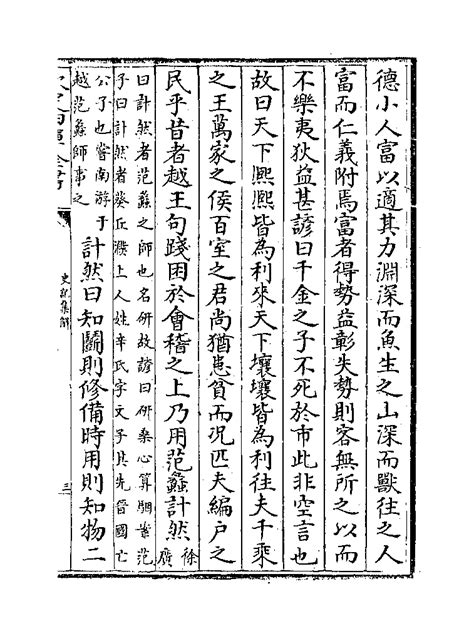 德小人富以適其力淵深而魚生之山深而獸往之人
富而仁義附焉富者得勢益彰失勢則客無所之以而
不樂夷狄益甚諺曰千金之子不死於市此非空言也
故曰天下熈熈皆為利來天下壤壤皆為利往夫千乘
之王萬家之侯百室之君尚猶患貧而况匹夫編户之
民乎昔者越王句踐困於會稽之上乃用范蠡計然徐廣
曰計然者范蠡之師也名研故諺曰研桑心算駰案范
子曰計然者葵丘濮上人姓辛氏字文子其先晉國亡
公子也嘗南游于
越范蠡師事之
計然曰知鬬則修備時用則知物二
史記集解
三